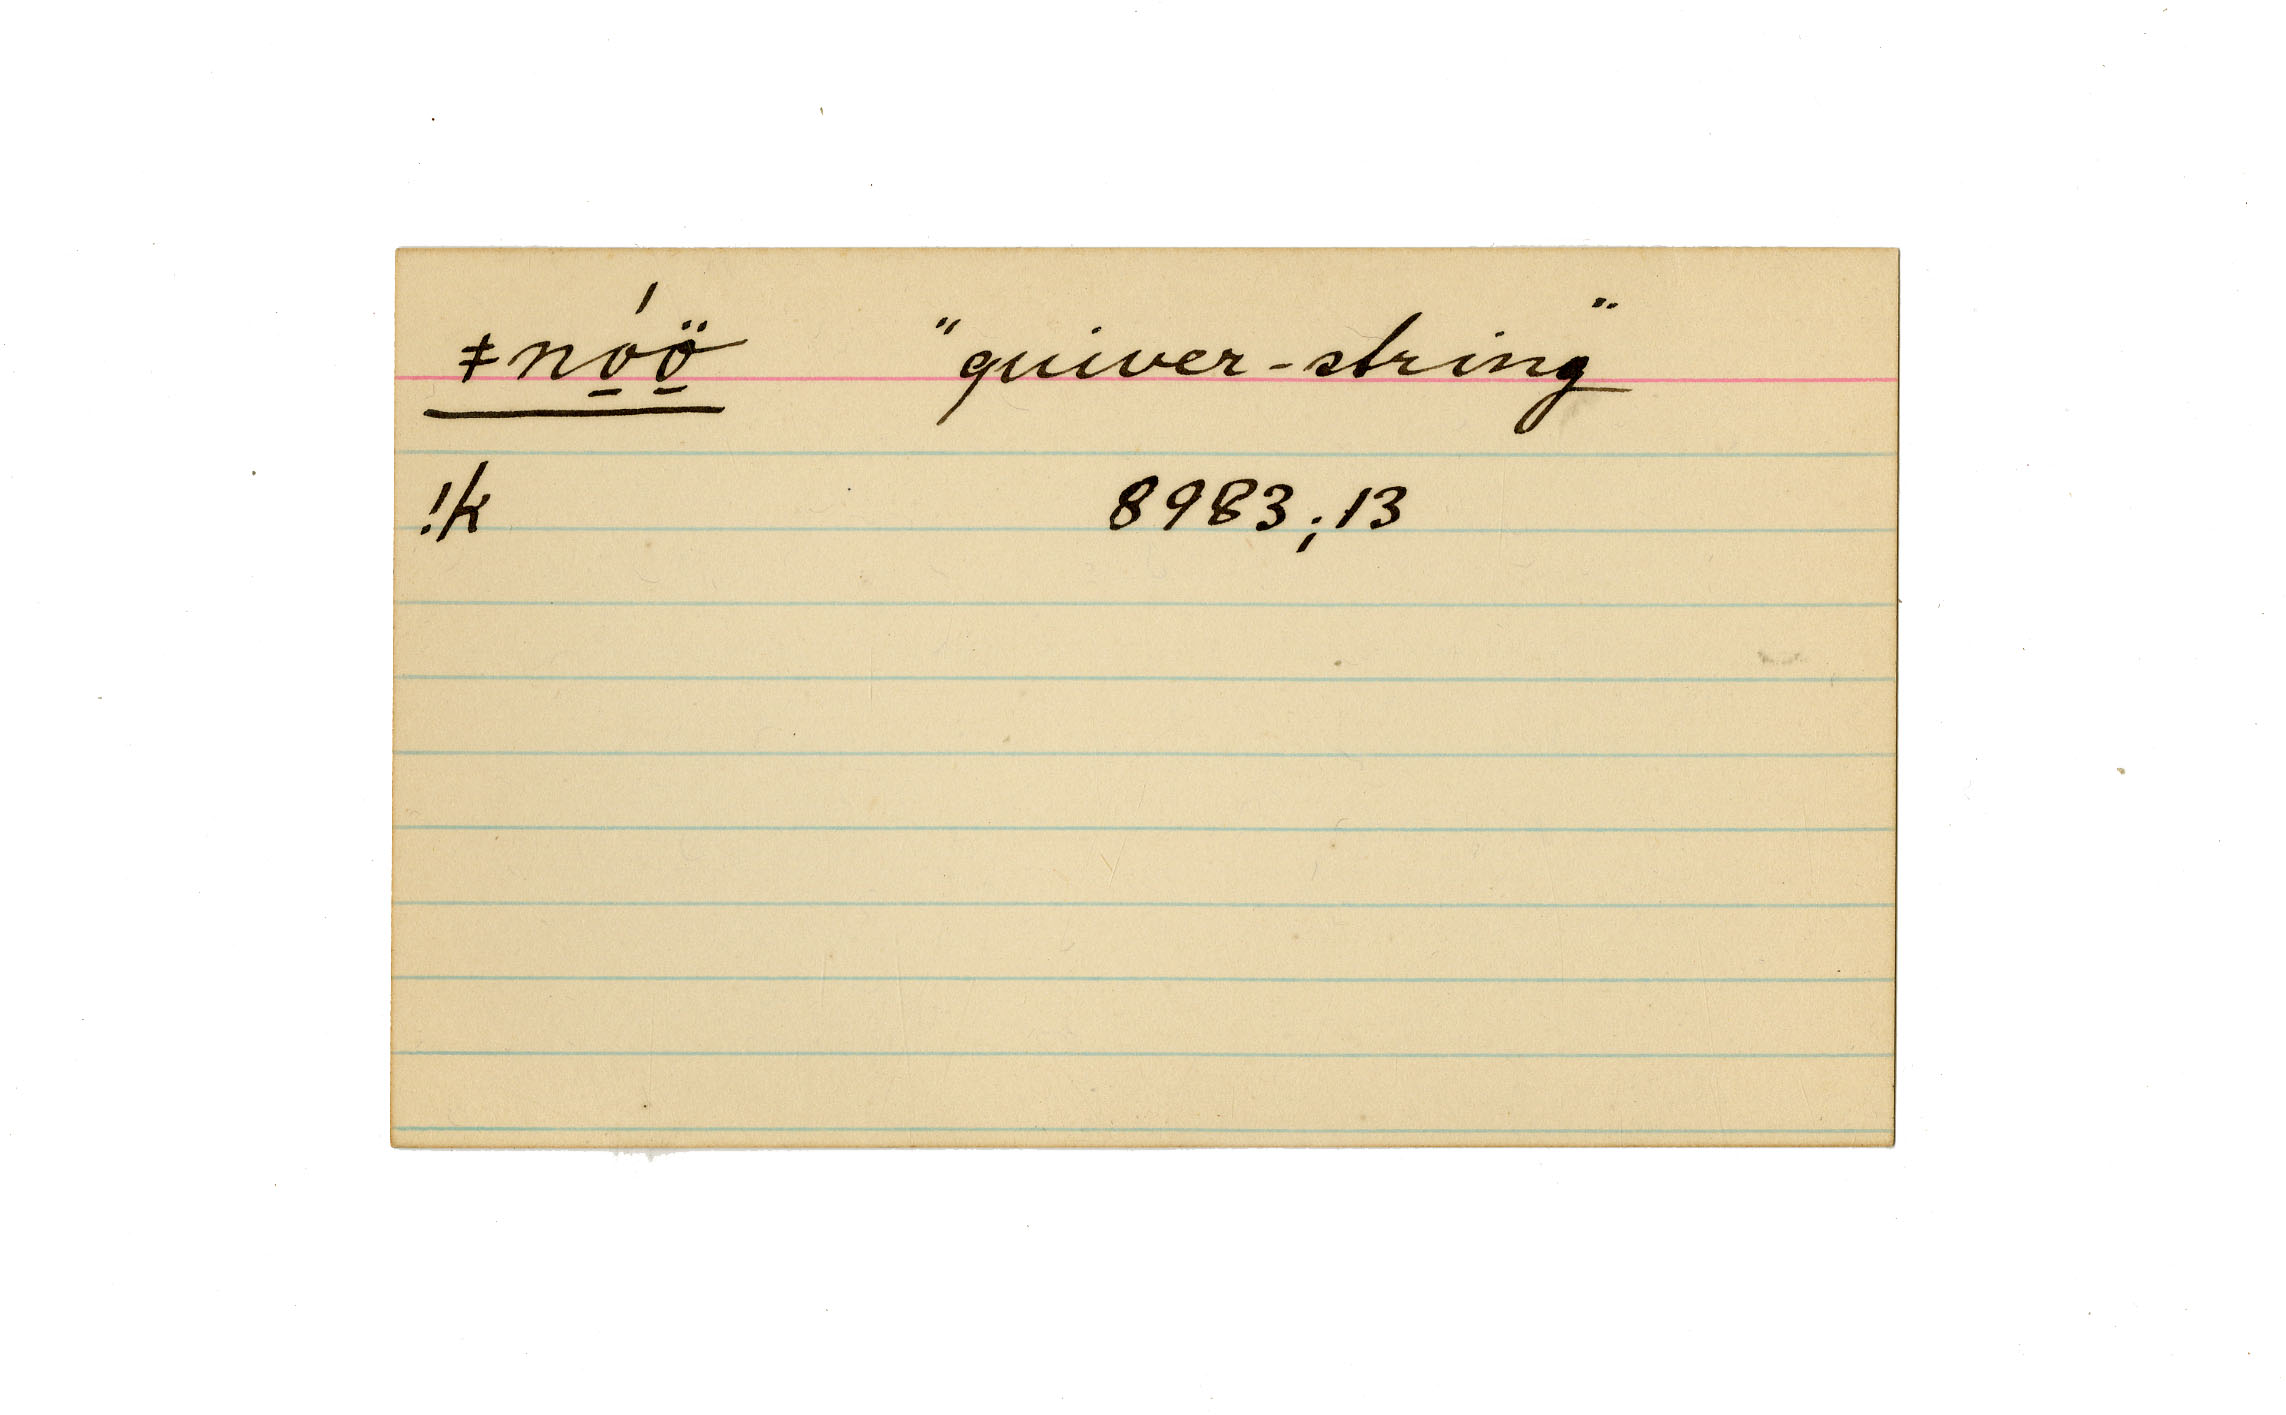 ǂnó̱ö̱ "quiver-string"
!k 8983; 13